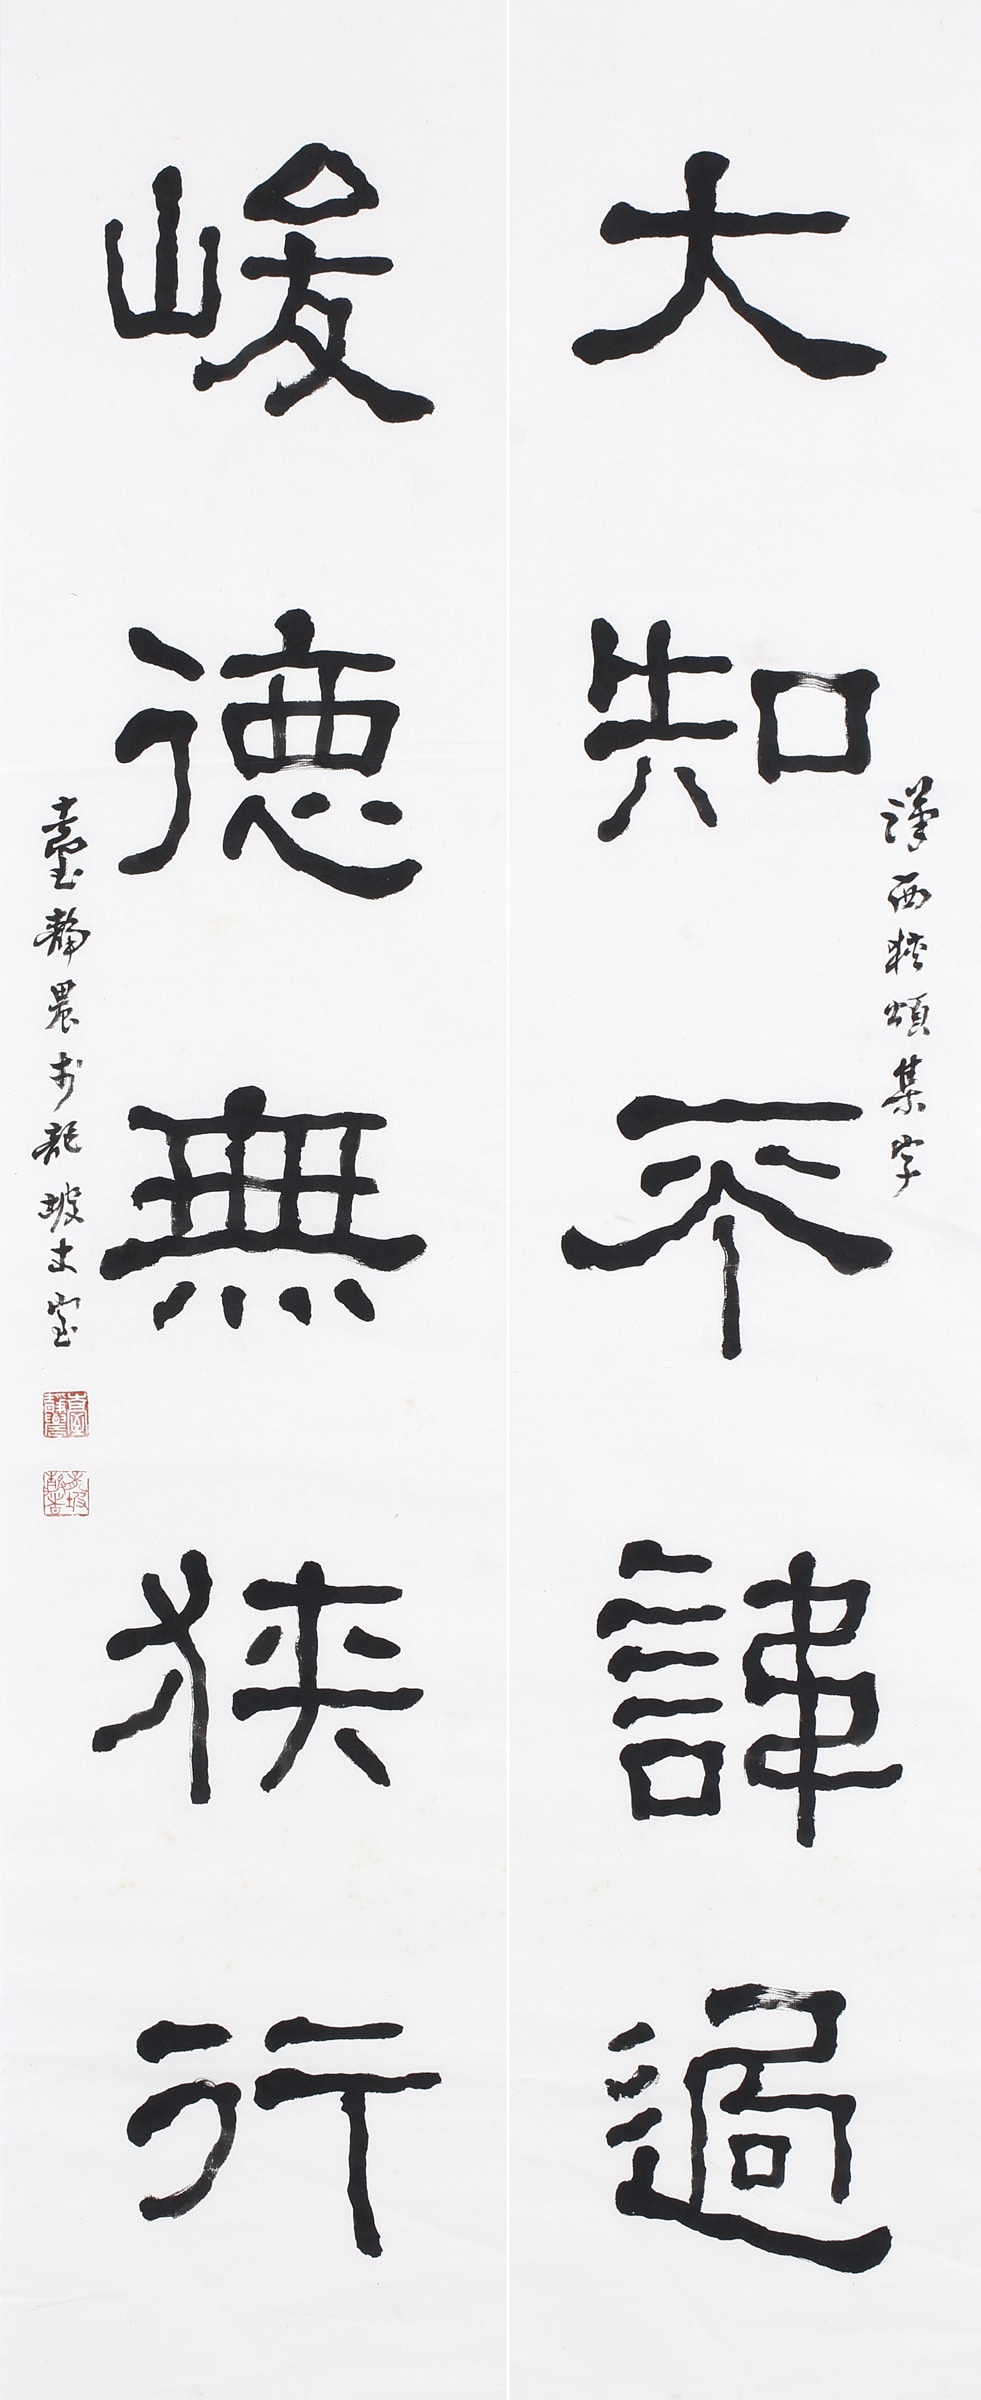 漢西狹頌集字
大知不諱過
峻德無狹行
臺靜農於龍坡丈室
臺靜農